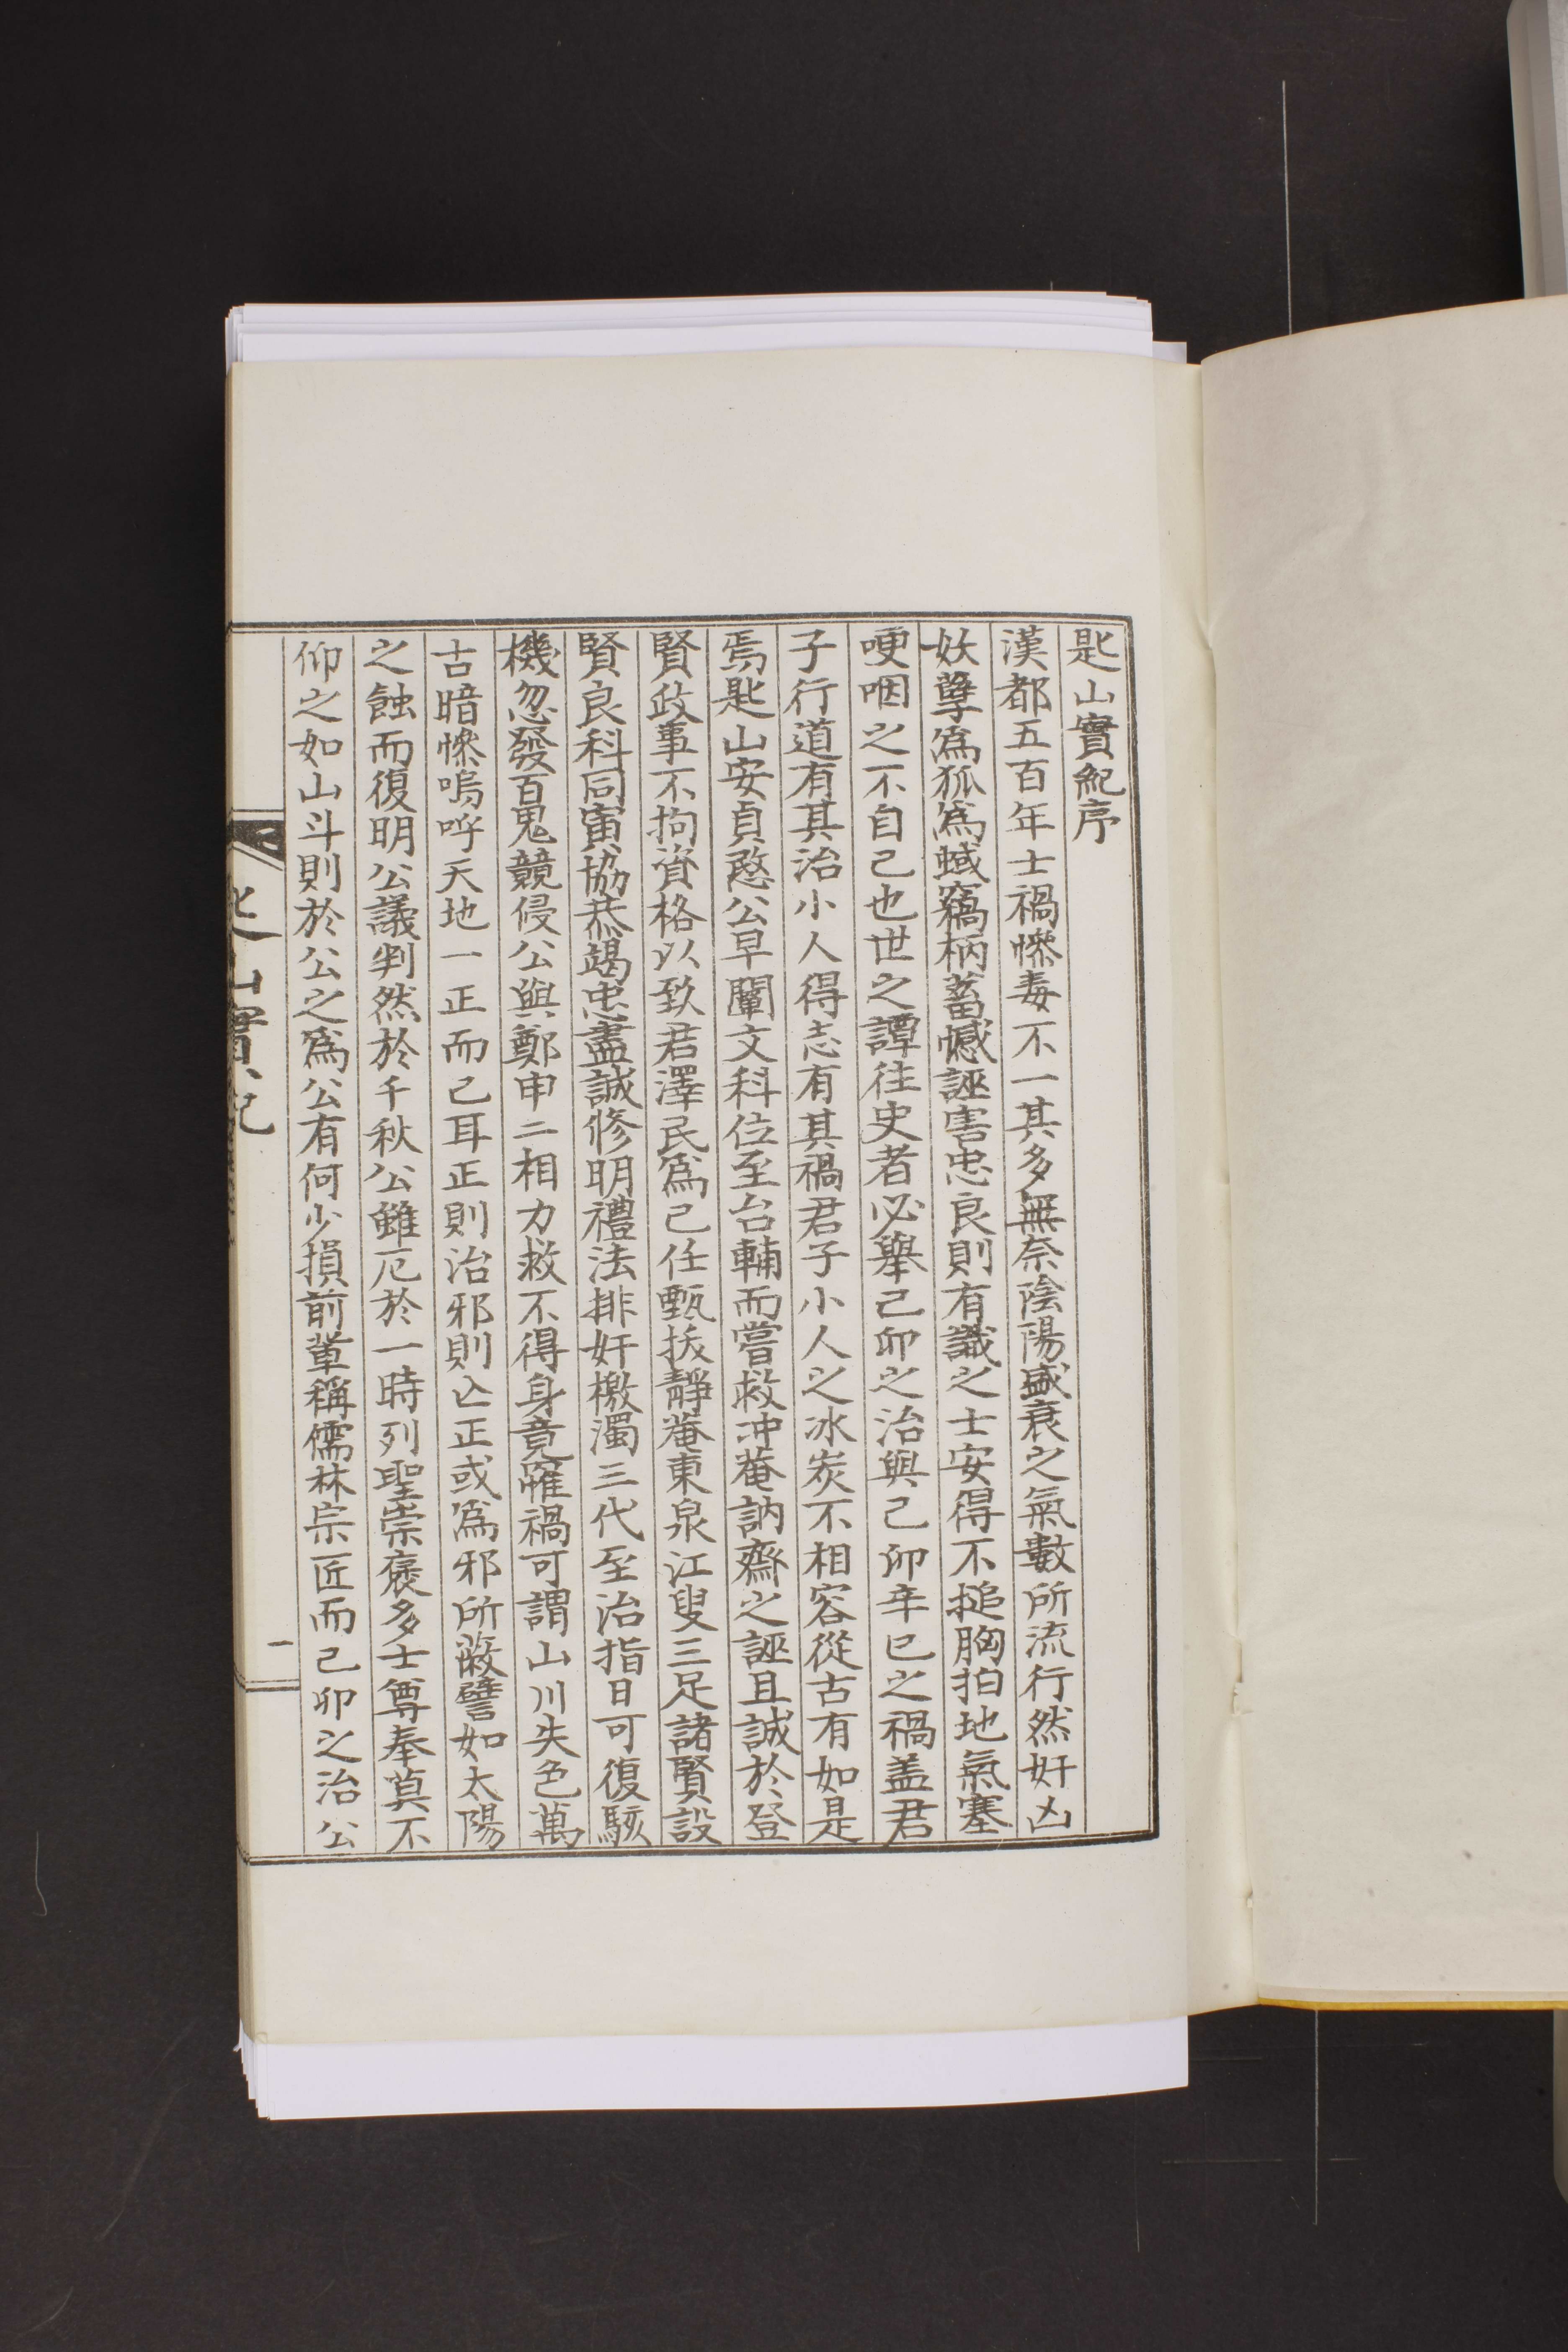 匙山實紀序
漢都五百年士禍慘毒不一其多無奈陰陽盛衰之氣數所流行然奸凶
妖孽爲狐爲蜮竊柄蓄憾誣害忠良則有識之士安得不搥胸拍地氣塞
哽咽之不自己也世之譚往史者必舉己卯之治與己卯辛巳之禍盖君
子行道有其治小人得志有其禍君子小人之冰炭不相容從古有如是
焉匙山安貞愍公早闡文科位至台輔而嘗救冲菴訥齋之誣且誠於登
賢政事不拘資格以致君澤民爲己任甄拔靜菴東泉江叟三足諸賢設
賢良科同寅協恭竭忠盡誠修明禮法排奸檄濁三代至治指日可復駭
機忽發百鬼競侵公與鄭申二相力救不得身竟罹禍可謂山川失色萬
古暗慘嗚呼天地一正而已耳正則治邪則亡正或爲邪所蔽譬如太陽
之蝕而復明公議判然於千秋公雖厄於一時列聖崇褒多士尊奉莫不
仰之如山斗則於公之爲公有何少損前輩稱儒林宗匠而己卯之治公
匙山實記
一